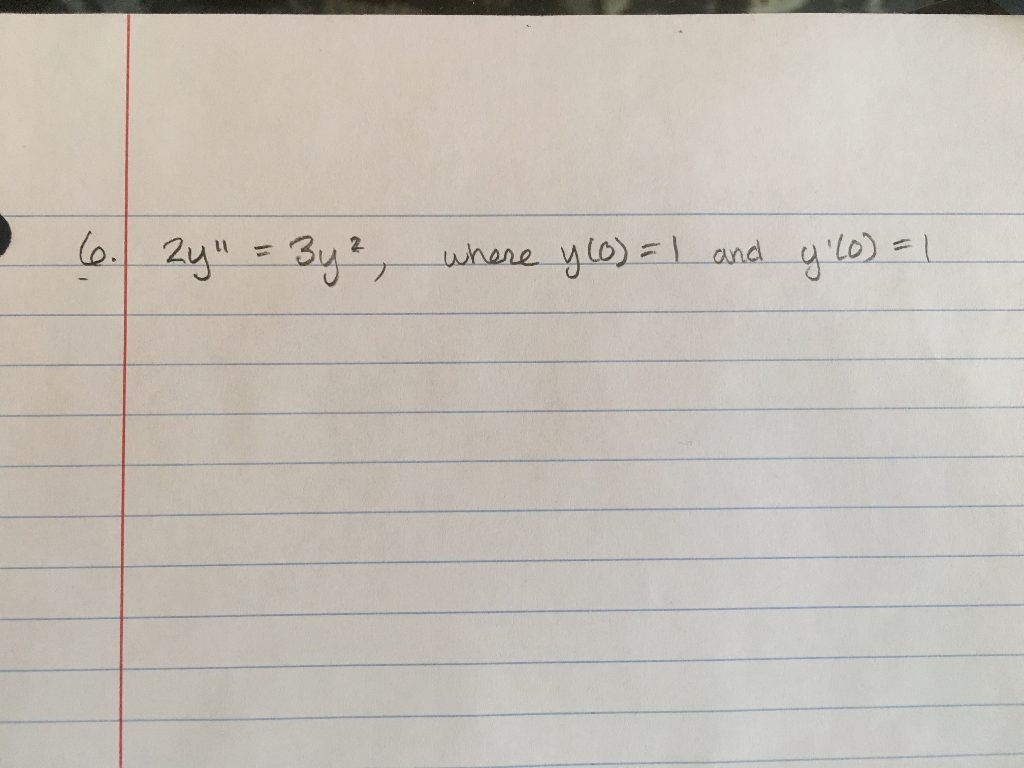 6. 2y" = 3y², where y(0) = 1 and y'(0) = 1